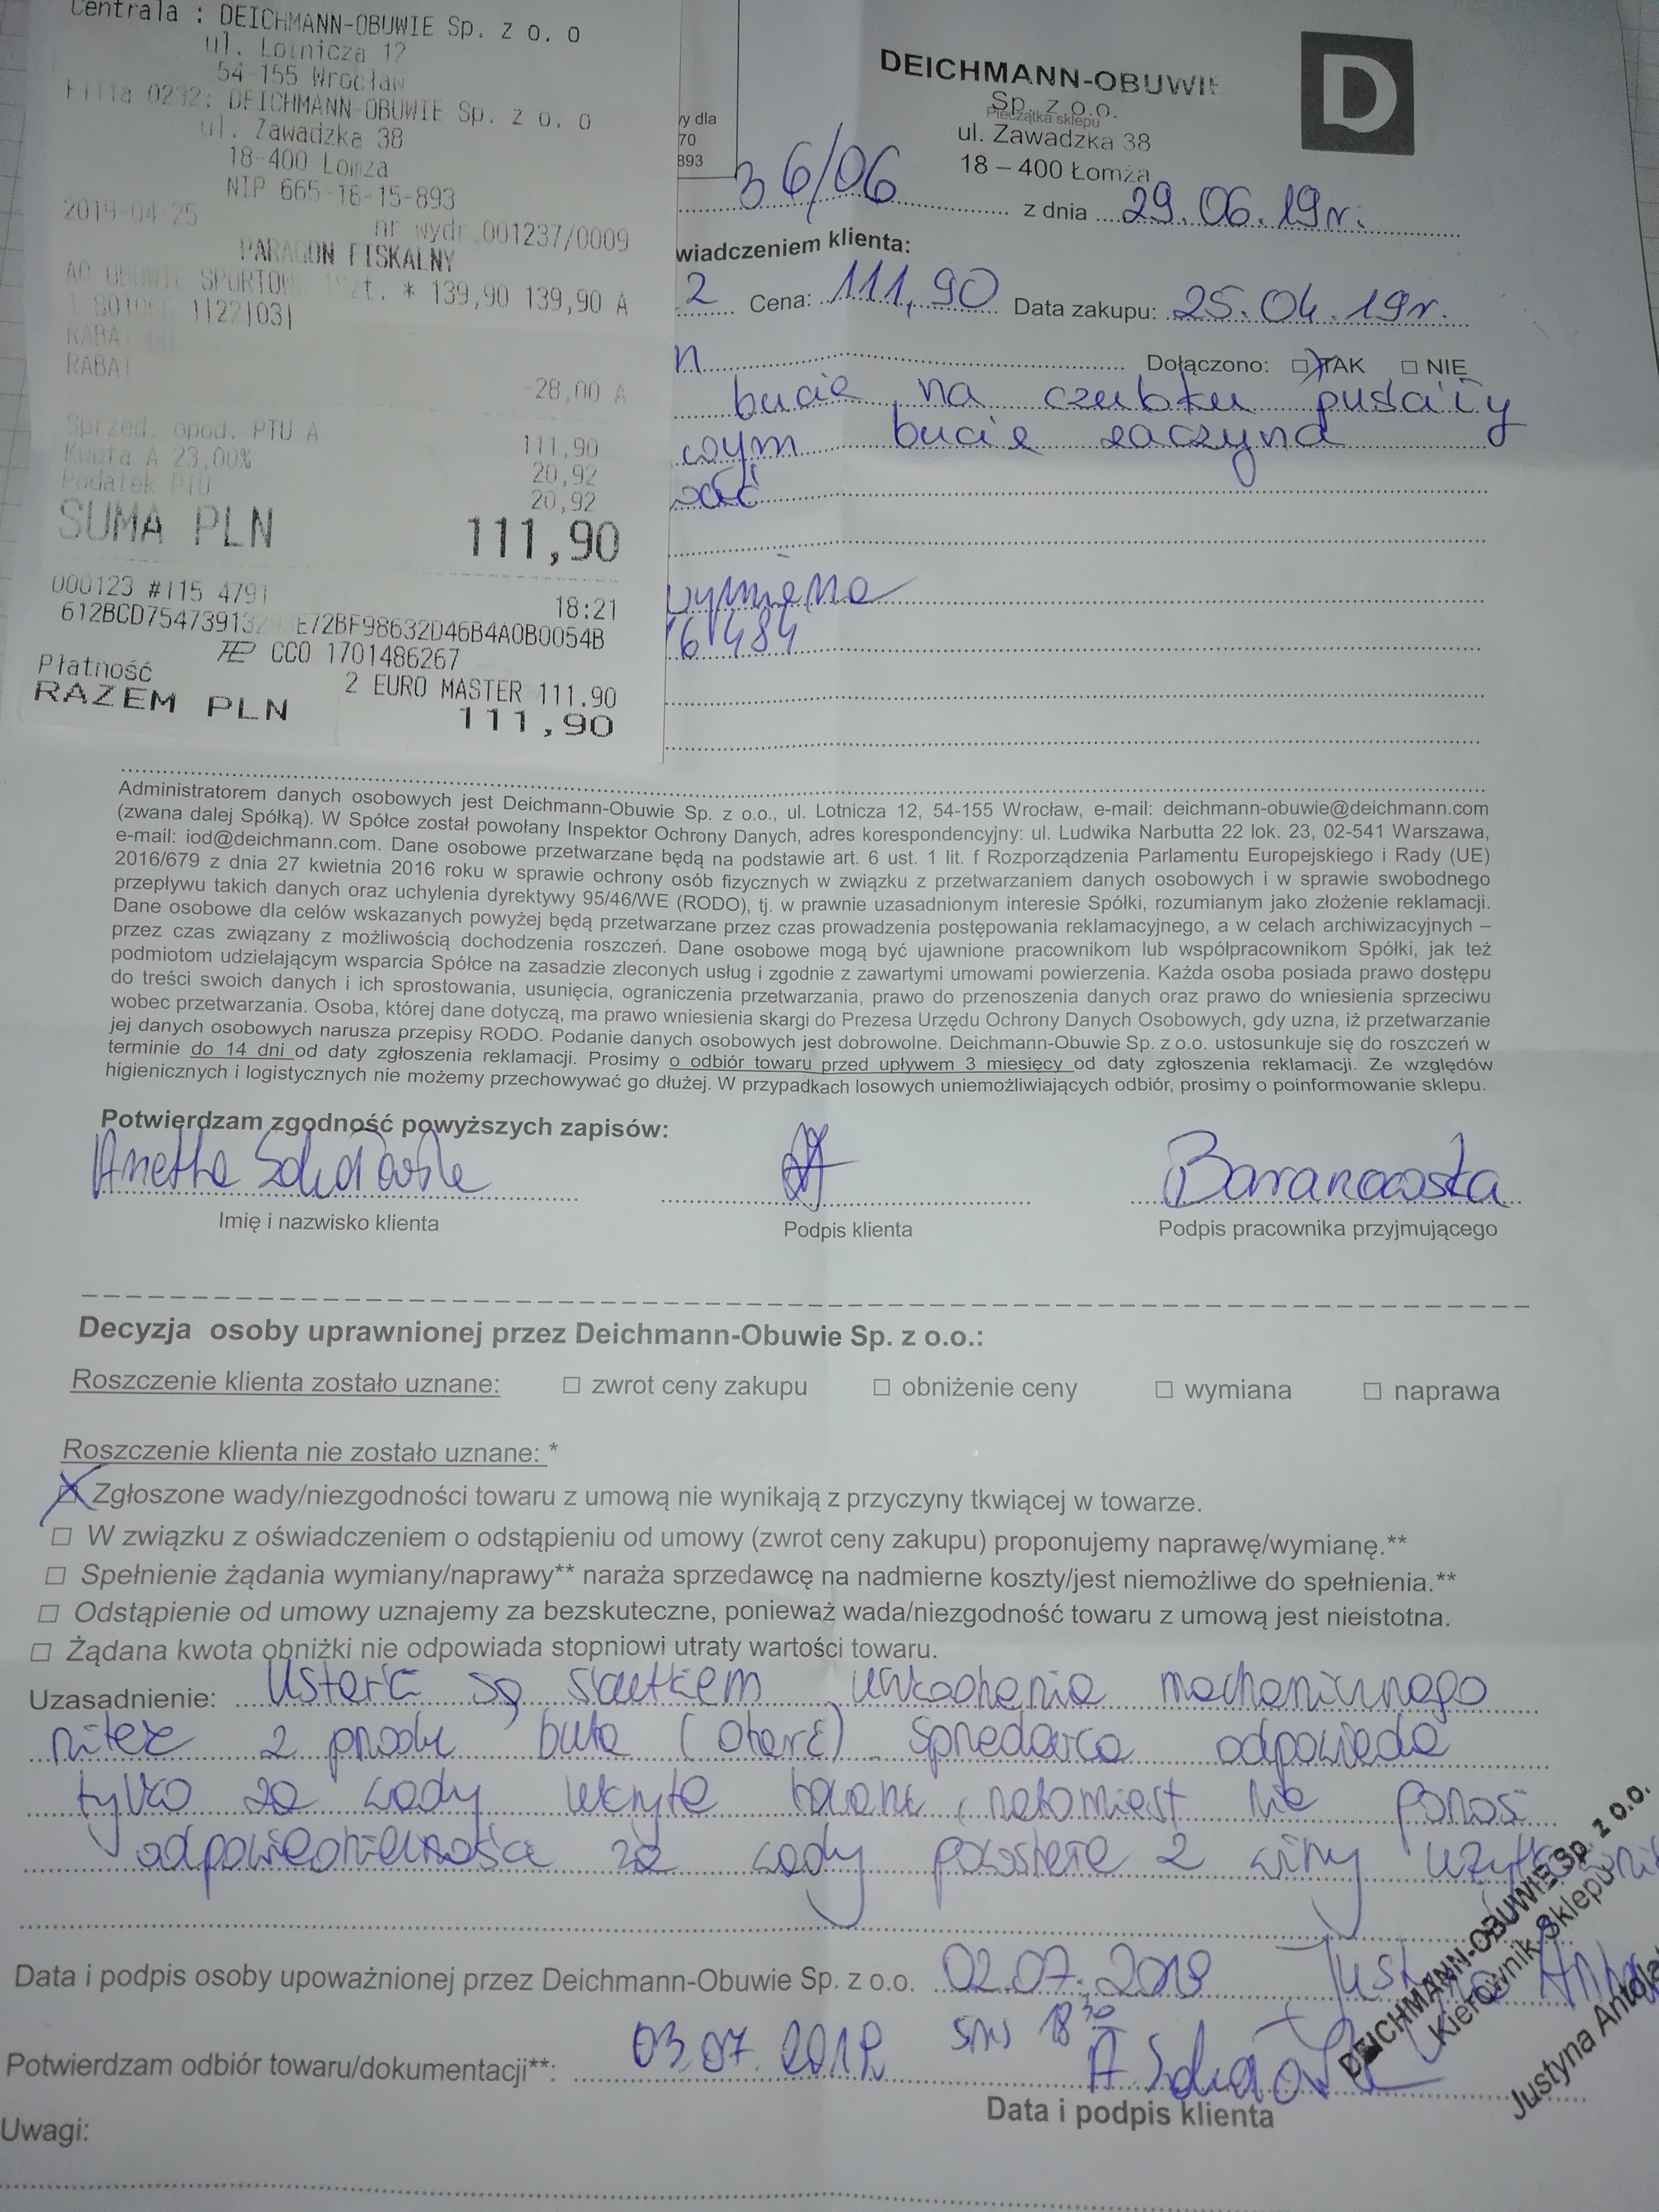 Centrala : DEICHMANN-OBUWIE Sp. z o. o
ul. Lotnicza 12
54-155 Wrocław
Filia 0232: DEICHMANN-OBUWIE Sp. z o. o
ul. Zawadzka 38
18-400 Łomża
NIP 665-18-15-893
2019-04-25
nr wydr.001237/0009
PARAGON FISKALNY
SPORTOW 1szt. * 139,90 139,90 A
1|22|03|
RABAT
RABAT
-28,00 A
Sprzed. opod. PTU A 111,90
Kwota A 23,00% 20,92
Podatek PTU 20,92
SUMA PLN 111,90
000123 #115 4791 18:21
E72BF98632D46B4A0B0054B
CCO 1701486267
Płatność 2 EURO MASTER 111.90
RAZEM PLN 111,90
DEICHMANN-OBUWIE
Sp. z o.o.
Pieczątka sklepu
ul. Zawadzka 38
18 – 400 Łomża
D
y dla
70
893
36/06 z dnia 29.06.19r.
wiadczeniem klienta:
2 Cena: 111,90 Data zakupu: 25.04.19r.
n Dołączono: □ TAK □ NIE
bucie na czubku puściły
wym bucie zaczyna
wymiana
6 484
Administratorem danych osobowych jest Deichmann-Obuwie Sp. z o.o., ul. Lotnicza 12, 54-155 Wrocław, e-mail: deichmann-obuwie@deichmann.com
(zwana dalej Spółką). W Spółce został powołany Inspektor Ochrony Danych, adres korespondencyjny: ul. Ludwika Narbutta 22 lok. 23, 02-541 Warszawa,
e-mail: iod@deichmann.com. Dane osobowe przetwarzane będą na podstawie art. 6 ust. 1 lit. f Rozporządzenia Parlamentu Europejskiego i Rady (UE)
2016/679 z dnia 27 kwietnia 2016 roku w sprawie ochrony osób fizycznych w związku z przetwarzaniem danych osobowych i w sprawie swobodnego
przepływu takich danych oraz uchylenia dyrektywy 95/46/WE (RODO), tj. w prawnie uzasadnionym interesie Spółki, rozumianym jako złożenie reklamacji.
Dane osobowe dla celów wskazanych powyżej będą przetwarzane przez czas prowadzenia postępowania reklamacyjnego, a w celach archiwizacyjnych –
przez czas związany z możliwością dochodzenia roszczeń. Dane osobowe mogą być ujawnione pracownikom lub współpracownikom Spółki, jak też
podmiotom udzielającym wsparcia Spółce na zasadzie zleconych usług i zgodnie z zawartymi umowami powierzenia. Każda osoba posiada prawo dostępu
do treści swoich danych i ich sprostowania, usunięcia, ograniczenia przetwarzania, prawo do przenoszenia danych oraz prawo do wniesienia sprzeciwu
wobec przetwarzania. Osoba, której dane dotyczą, ma prawo wniesienia skargi do Prezesa Urzędu Ochrony Danych Osobowych, gdy uzna, iż przetwarzanie
jej danych osobowych narusza przepisy RODO. Podanie danych osobowych jest dobrowolne. Deichmann-Obuwie Sp. z o.o. ustosunkuje się do roszczeń w
terminie do 14 dni od daty zgłoszenia reklamacji. Prosimy o odbiór towaru przed upływem 3 miesięcy od daty zgłoszenia reklamacji. Ze względów
higienicznych i logistycznych nie możemy przechowywać go dłużej. W przypadkach losowych uniemożliwiających odbiór, prosimy o poinformowanie sklepu.
Potwierdzam zgodność powyższych zapisów:
Anetta Baranowska
Imię i nazwisko klienta Podpis klienta Podpis pracownika przyjmującego
Decyzja osoby uprawnionej przez Deichmann-Obuwie Sp. z o.o.:
Roszczenie klienta zostało uznane: □ zwrot ceny zakupu □ obniżenie ceny □ wymiana □ naprawa
Roszczenie klienta nie zostało uznane: *
Zgłoszone wady/niezgodności towaru z umową nie wynikają z przyczyny tkwiącej w towarze.
□ W związku z oświadczeniem o odstąpieniu od umowy (zwrot ceny zakupu) proponujemy naprawę/wymianę.**
□ Spełnienie żądania wymiany/naprawy** naraża sprzedawcę na nadmierne koszty/jest niemożliwe do spełnienia.**
□ Odstąpienie od umowy uznajemy za bezskuteczne, ponieważ wada/niezgodność towaru z umową jest nieistotna.
□ Żądana kwota obniżki nie odpowiada stopniowi utraty wartości towaru.
Uzasadnienie: Usterki są skutkiem uszkodzenia mechanicznego
nitek z przodu buta (otarć). Sprzedawca odpowiada
tylko za wady ukryte towaru, natomiast nie ponosi
odpowiedzialności za wady powstałe z winy
Data i podpis osoby upoważnionej przez Deichmann-Obuwie Sp. z o.o. 02.07.2019 Justyna
DEICHMANN-OBUWIE Sp. z o.o.
Kierownik Sklepu
Justyna
Potwierdzam odbiór towaru/dokumentacji**: 03.07.2019 18 30
Data i podpis klienta
Uwagi: